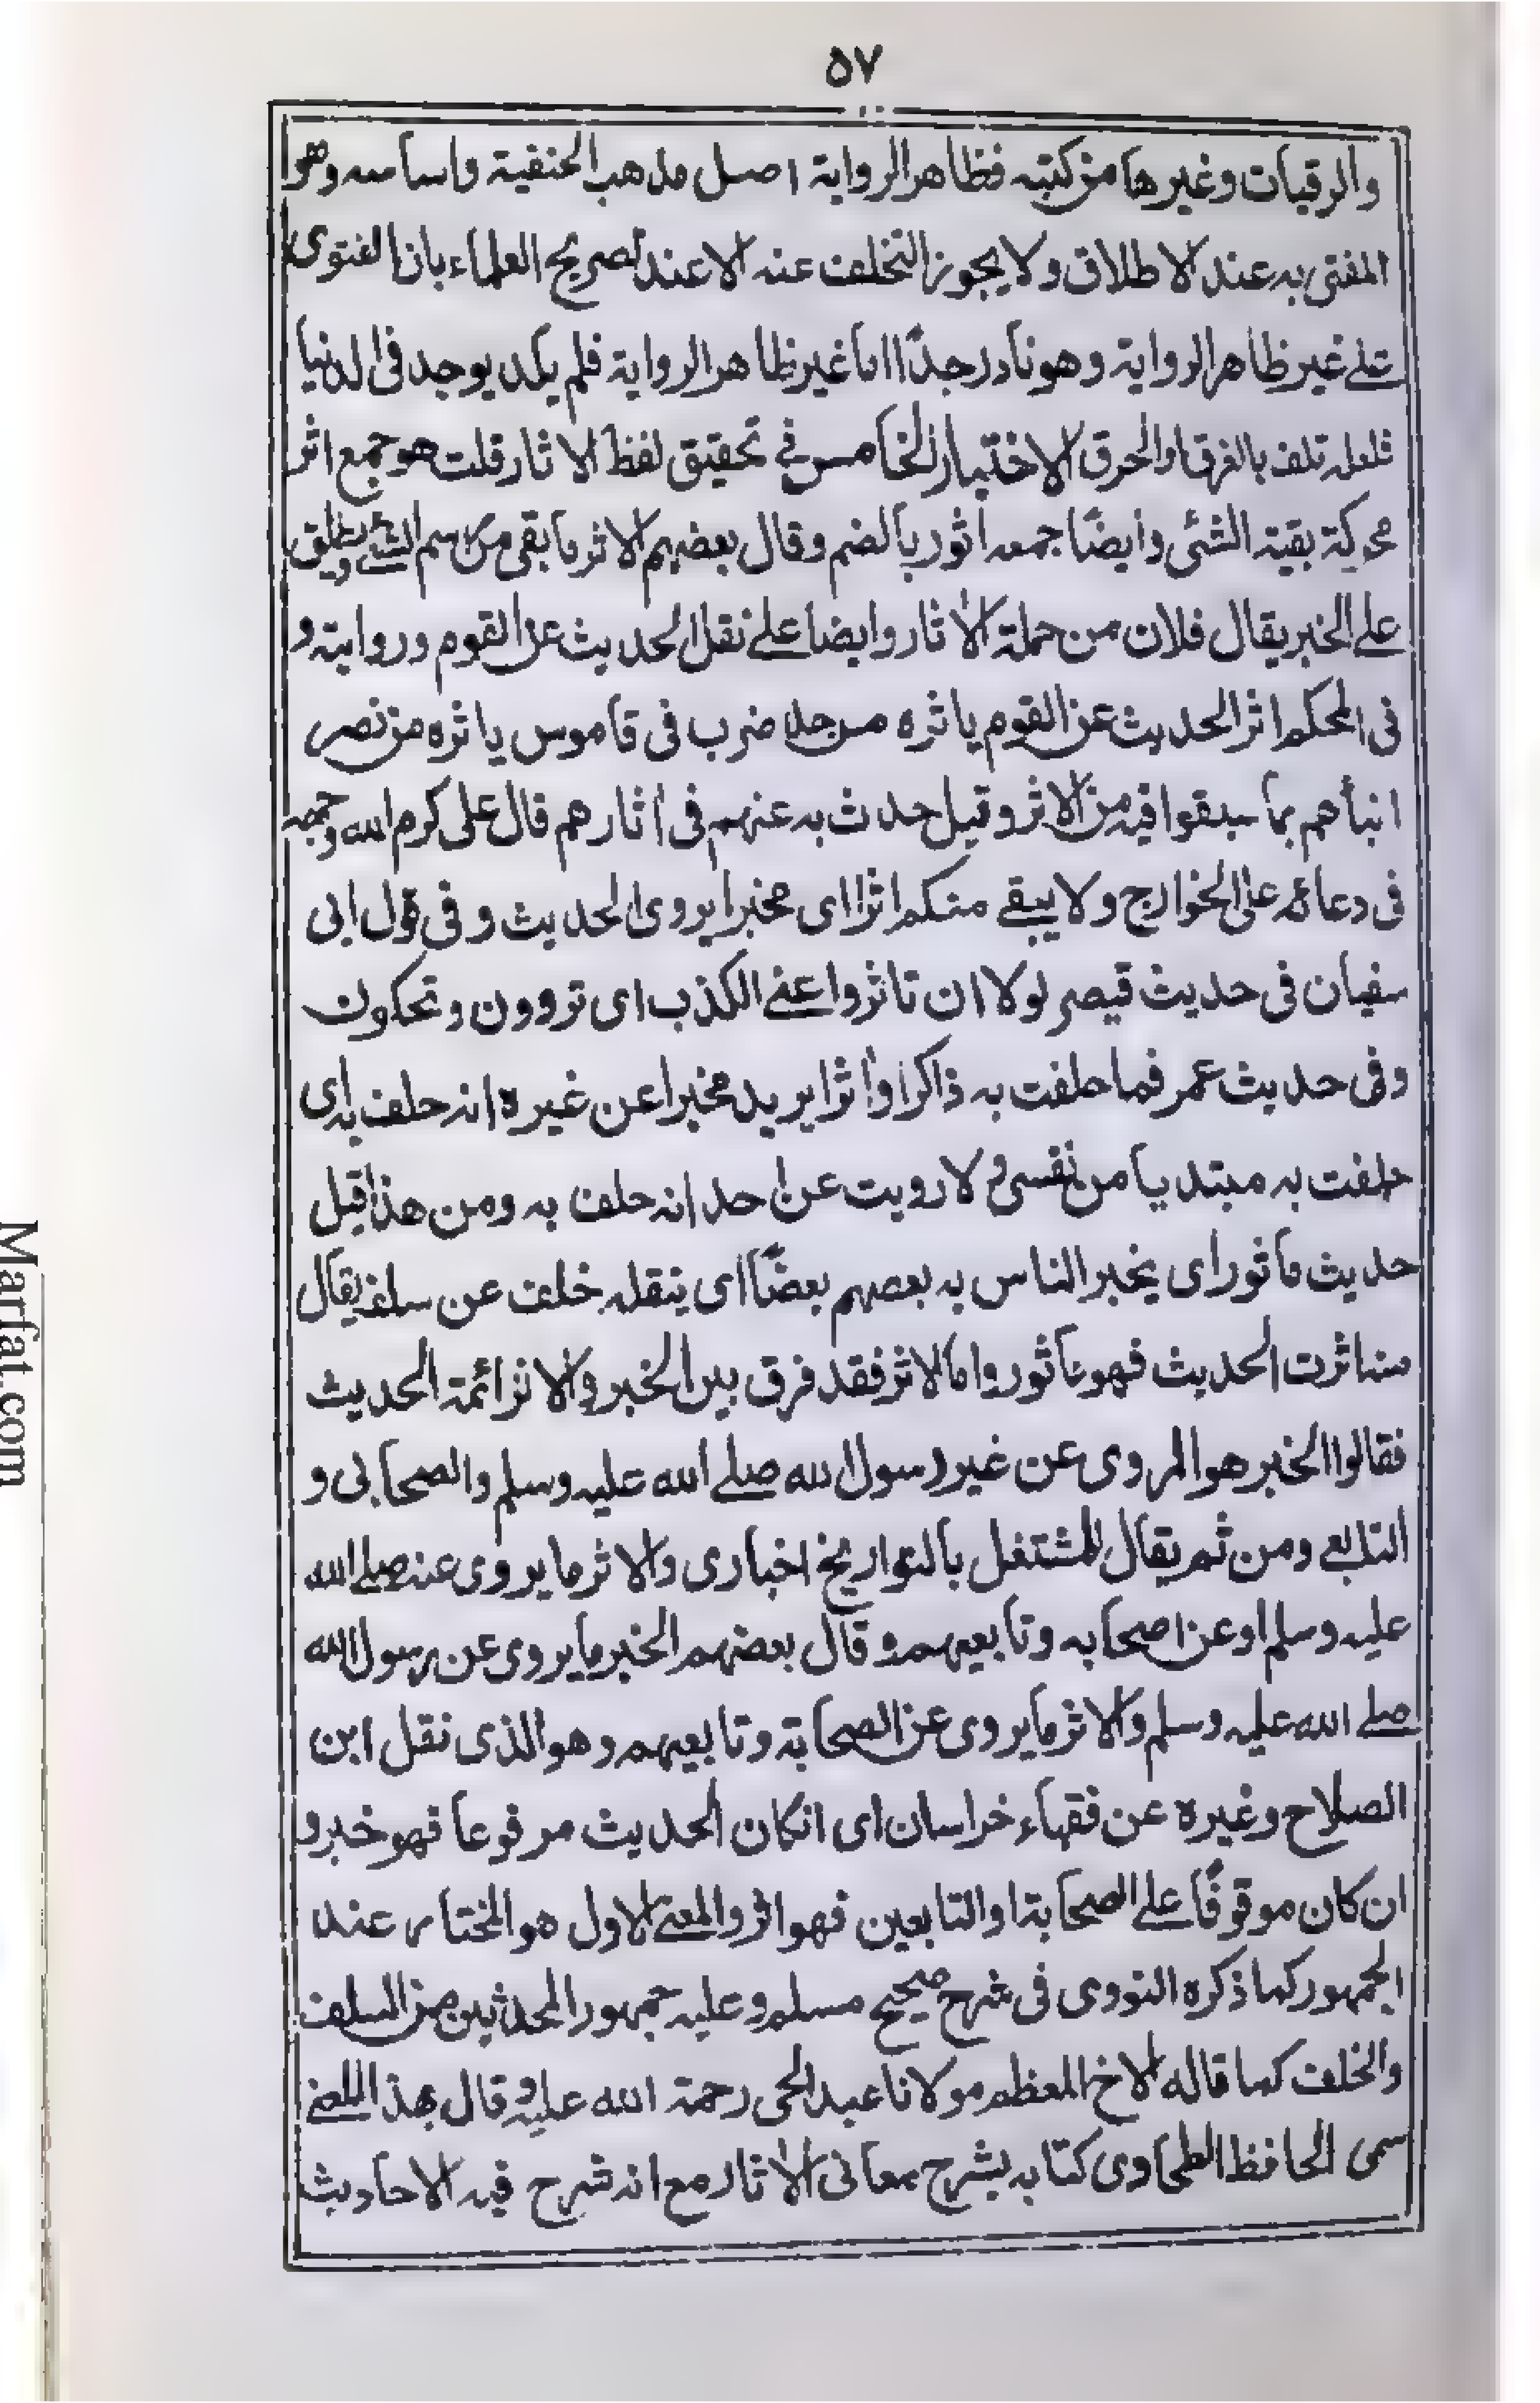 ٥٧
والرقيات وغيرها من كتبه فظاهر الرواية اصل مذهب الحنفية واساسه وهو
المفتى به عند الاطلاق ولا يجوز التخلف عنه الا عند تصريح العلماء بان الفتوى
علے غير ظاهر الرواية وهو نادر جدًا اما غير ظاهر الرواية فلم يكد يوجد فى الدنيا
فلعله تلف بالغرق او الحرق الاختبار الخامس فے تحقيق لفظ الاثار قلت هو جمع اثر
محركة بقية الشئى وايضًا جمعه اثور بالضم وقال بعضهم الاثر ما بقى من اسم الشئے ويطلق
على الخبر يقال فلان من حملة الاثار وايضا علے نقل الحديث عن القوم وروايته و
فى المحكم اثر الحديث عن القوم ياثره من حد ضرب فى قاموس ياثره من نصر
انبأهم بما سبقوا فيه من الاثر وقيل حدث به عنهم فى اثارهم قال على كرم الله وجهه
فى دعائه على الخوارج ولا يبقے منكم اثرا اى مخبرا يروى الحديث و فى قول ابى
سفيان فى حديث قيصر لولا ان تاثروا عنے الكذب اى تروون و تحكون
وفى حديث عمر فما حلفت به ذاكرا واثرا يريد مخبرا عن غيره انه حلف به اى
حلفت به مبتديا من نفسى و لا رويت عن احد انه حلف به ومن هذا قيل
حديث ماثور اى يخبر الناس به بعضهم بعضًا اى ينقله خلف عن سلف يقال
منه اثرت الحديث فهو ماثور واما الاثر فقد فرق بين الخبر والاثر ائمة الحديث
فقالوا الخبر هو المروى عن غير رسول الله صلے الله عليه وسلم والصحابى و
التابعے ومن ثم يقال للمشتغل بالتواريخ اخبارى والاثر ما يروى عنه صلے الله
عليه وسلم او عن اصحابه وتابعيهم و قال بعضهم الخبر ما يروى عن رسول الله
صلے الله عليه وسلم والاثر ما يروى عن الصحابة وتابعيهم وهو الذى نقل ابن
الصلاح وغيره عن فقهاء خراسان اى انكان الحديث مرفوعا فهو خبر و
ان كان موقوفًا علے الصحابة او التابعين فهو اثر والمعنے الاول هو المختار عند
الجمهور كما ذكره النووى فى شرح صحيح مسلم وعليه جمهور المحدثين من السلف
والخلف كما قاله الاخ المعظم مولانا عبد الحى رحمة الله عليه و قال بهذا المعنے
سمى الحافظ الطحاوى كتابه بشرح معانى الاثار مع انه شرح فيه الاحاديث
Marfat.com